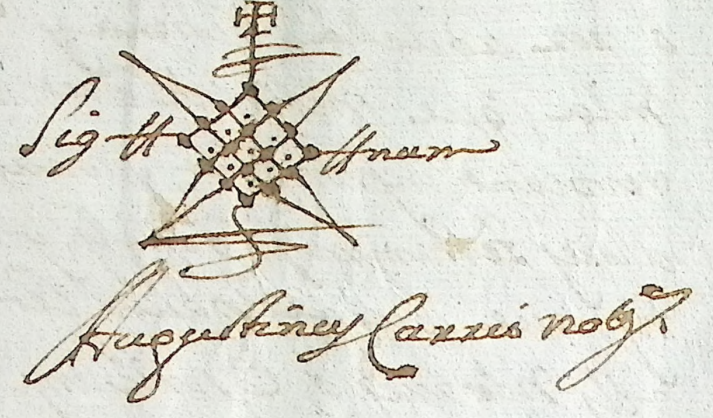 Sig num
Augustinus Carrió notʳ